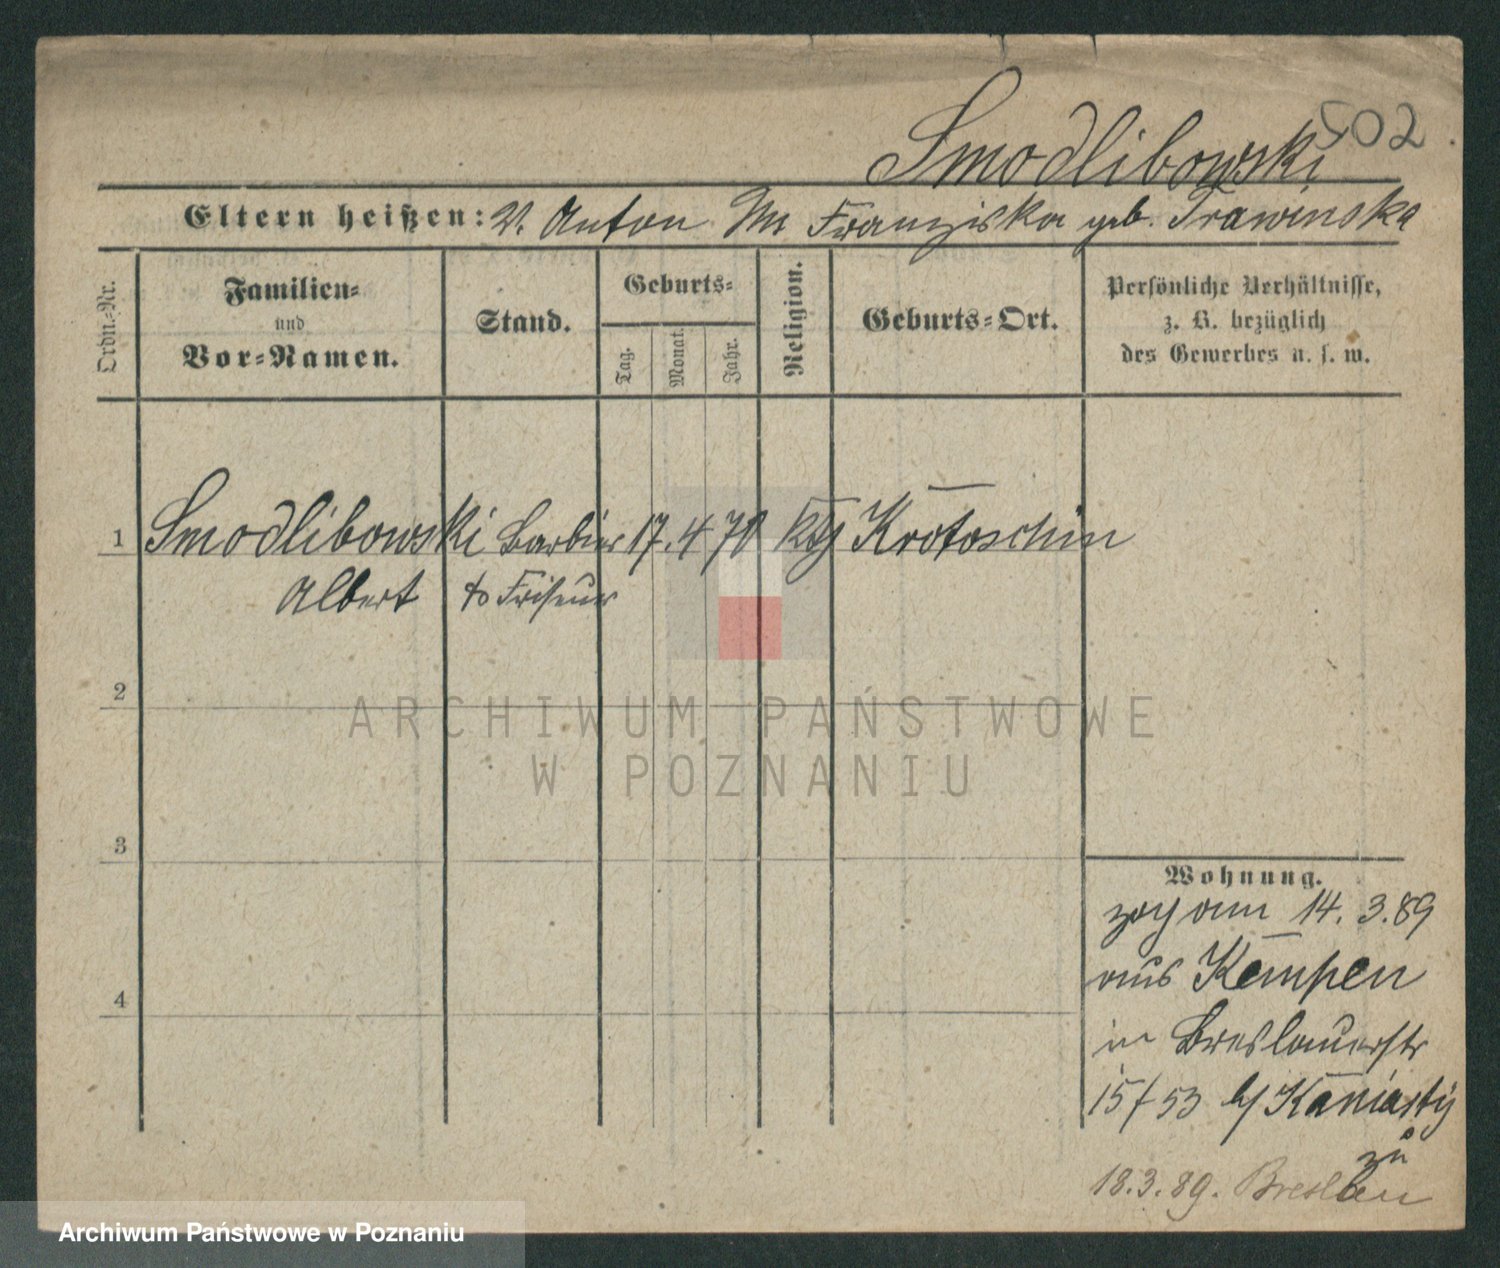 502
Smodlibowski
Eltern heißen: V. Anton M Franziska geb. Trawinska
Ordn.-Nr.
Familien- und Vor-Namen.
Stand.
Geburts-
Tag.
Monat.
Jahr.
Religion.
Geburts-Ort.
Persönliche Verhältnisse,
z. B. bezüglich
des Gewerbes u. s. w.
1 Smodlibowski Barbier 17. 4 70 kth Krotoschin
Albert & Friseur
2
3
4
Wohnung.
zog am 14. 3. 89
aus Kempen
in Breslauerstr
15/53 b/ Kaniasty
zu
18.3.89. Breslau
ARCHIWUM PAŃSTWOWE
W POZNANIU
Archiwum Państwowe w Poznaniu